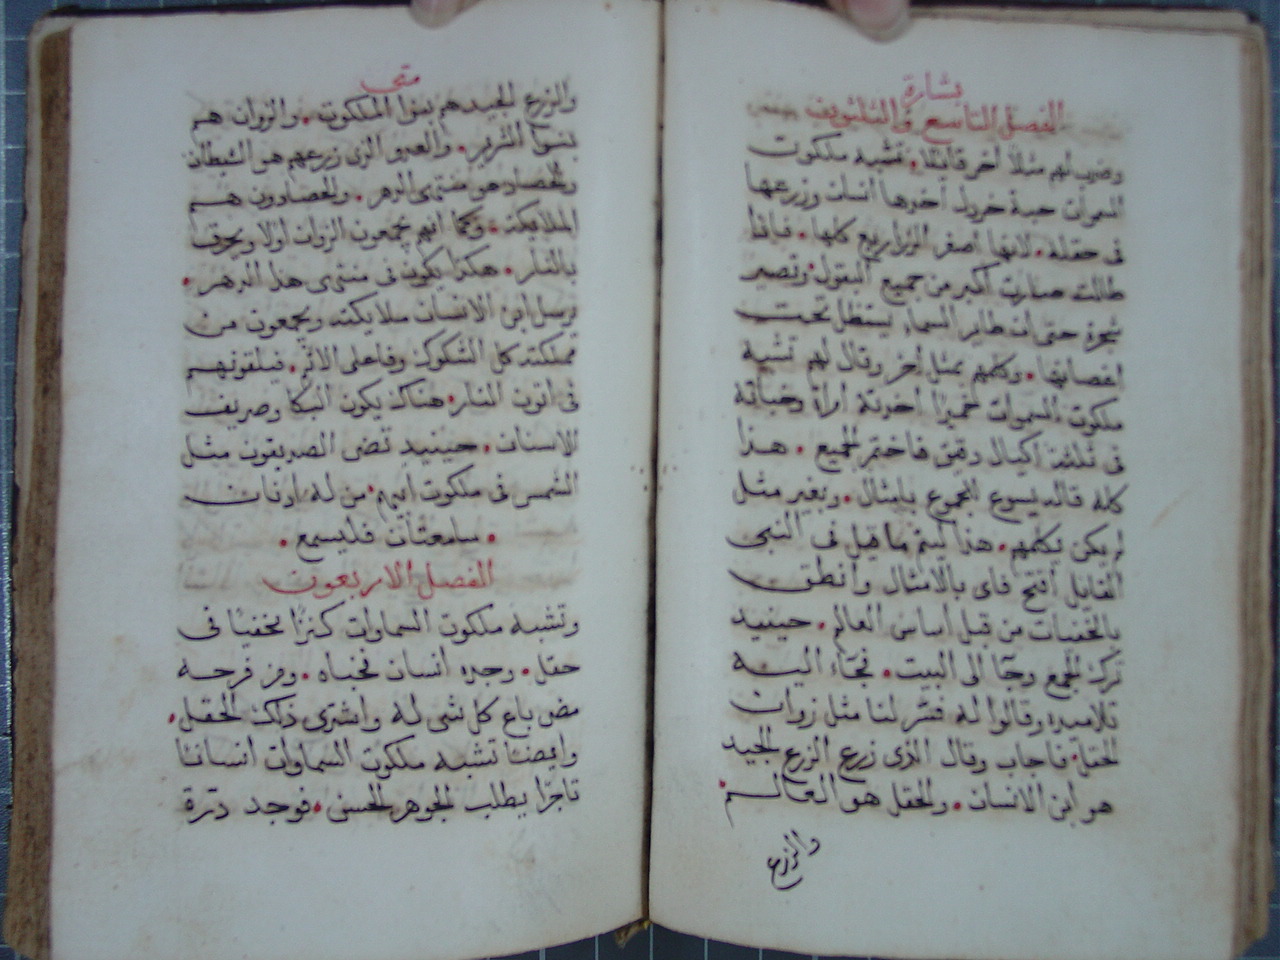 بشارة
الفصل التاسع والثلثون
وضرب لهم مثلاً اخر قائلا. تشبه ملكوت
السموات حبة خردل أخذها انسان وزرعها
فى حقله. لانها أصغر الزراريع كلها. فاذا
طالت صارت أكبر من جميع البقول. وتصير
شجرة حتى ان طاير السماء يستظل تحت
اغصانها. وكلمهم بمثل أخر وقال لهم تشبه
ملكوت السموات خميرًا أخذته امرأة وخبأته
فى ثلثة اكيال دقيق فاختمر الجميع. هذا
كله قاله يسوع للجموع بامثال. وبغير مثل
لم يكن يكلمهم. هذا ليتم ما قيل فى النبى
القايل افتح فاى بالامثال وانطق
بالخفيات من قبل أساس العالم. حينيد
ترك الجمع وجا الى البيت. فجاء اليه
تلاميذه وقالوا له فسر لنا مثل زوان
الحقل. فاجاب وقال الذى زرع الزرع الجيد
هو ابن الانسان. والحقل هو العالم.
والزرع
متى
والزرع الجيد هم بنوا الملكوت. والزوان هم
بنوا الشرير. والعدو الذى زرعهم هو الشيطان
والحصاد هو منتهى الدهر. والحصادون هم
الملايكة. وكما انهم يجمعون الزوان اولا ويحرق
بالنار. هكذا يكون فى منتهى هذا الدهر.
يرسل ابن الانسان ملايكته ويجمعون من
مملكته كل الشكوك وفاعلى الاثم. فيلقونهم
فى اتون النار. هناك يكون البكا وصريف
الاسنان. حينيد تضى الصديقون مثل
الشمس فى ملكوت ابيهم. من له اوذان
. سامعتان فليسمع.
الفصل الاربعون
وتشبه ملكوت السماوات كنزًا مخفيًا فى
حقل. وجده انسان فخباه. ومن فرحه
مضى باع كل شى له واشترى ذلك الحقل.
وايضا تشبه ملكوت السماوات انسانا
تاجرًا يطلب الجوهر الحسن. فوجد درة